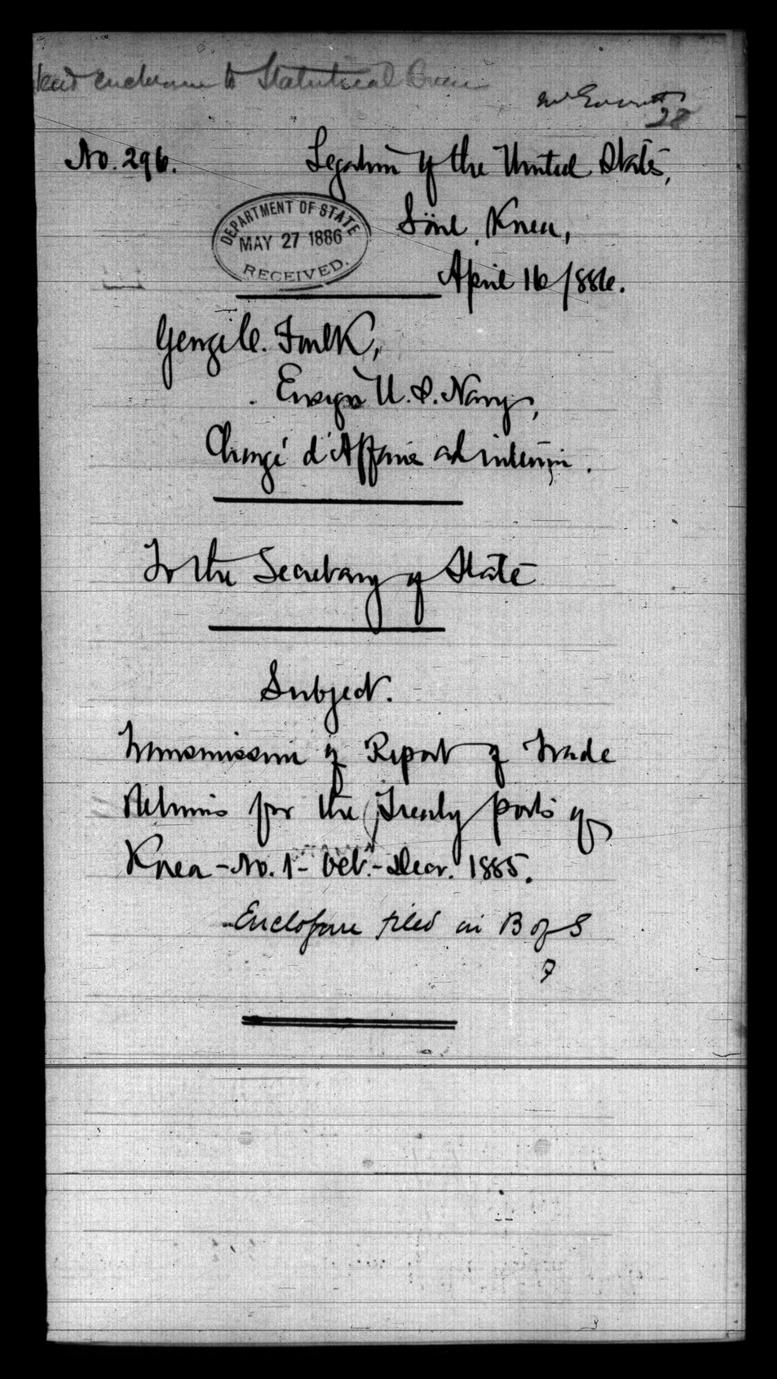 enclosure to Statistical Bureau
28
No. 296.
Legation of the United States,
Söul, Korea,
April 16/886.
DEPARTMENT OF STATE
MAY 27 1886
RECEIVED.
George C. Foulk,
Ensign U.S. Navy,
Chargé d'Affaires ad interim.
To the Secretary of State
Subject.
Transmission of Report of Trade
Returns for the Treaty ports of
Korea - No. 1 - Oct. - Decr. 1885.
Enclosure filed in B of S